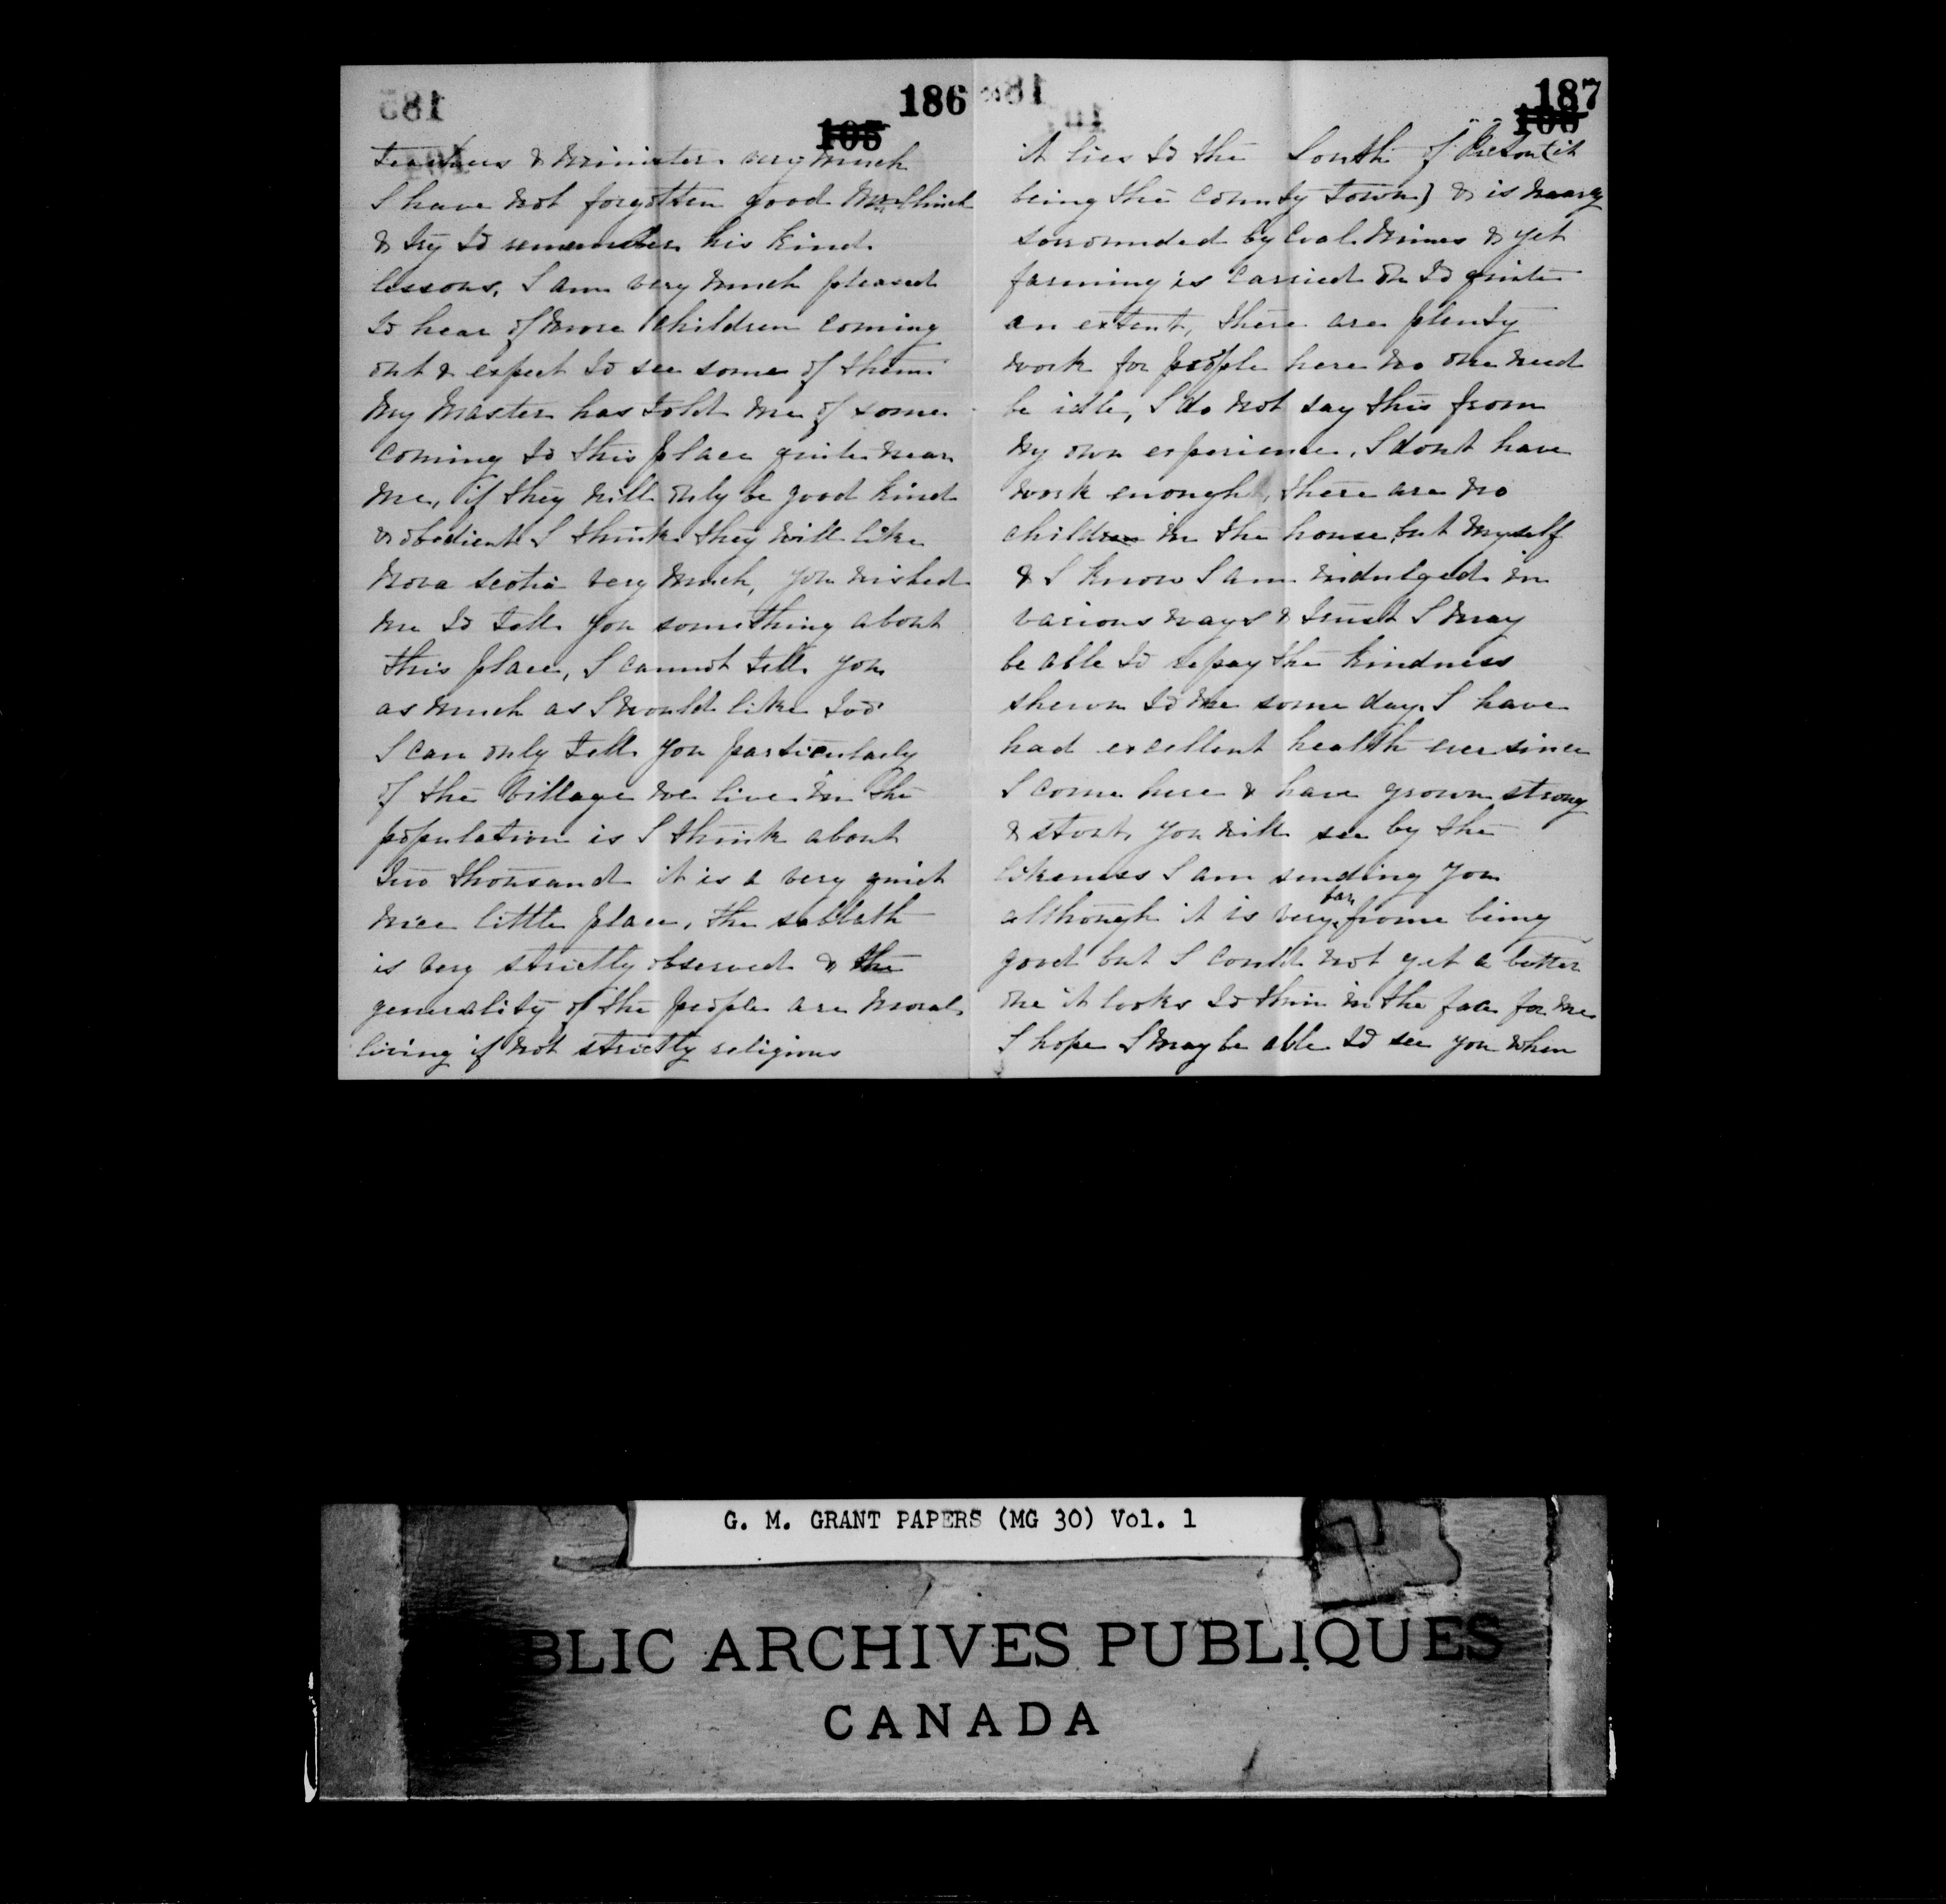 186
105
teachers & minister very much
I have not forgotten good Mr
& try to remember his kind
lessons, I am very much pleased
to hear of more children coming
out & expect to see some of them
My Master has told me of some
coming to this place quite near
me, if they will only be good kind
& obedient I think they will like
Nova Scotia very much, you wished
me to tell you something about
this place, I cannot tell you
as much as I would like too
I can only tell you particularly
of the village we live in the
population is I think about
two thousand it is a very quiet
nice little place, the sabbath
is very strictly observed & the
generality of the people are moral
living if not strictly religious
187
106
it lies to the South of Pictou (it
being the county town) & is nearly
sorrounded by Coal Mines & yet
farming is carried on to quite
an extent, there are plenty
work for people here no one need
be idle, I do not say this from
my own experience, I dont have
work enough, there are no
children in the house, but myself
& I know I am indulged in
various ways & trust I may
be able to repay the kindness
shewn to me some day. I have
had excellent health ever since
I come here & have grown strong
& stout, you will see by the
likeness I am sending you
although it is very far frome being
good but I could not get a better
one it looks to thin in the face for me
I hope I may be able to see you when
G. M. GRANT PAPERS (MG 30) Vol. 1
BLIC ARCHIVES PUBLIQUES
CANADA